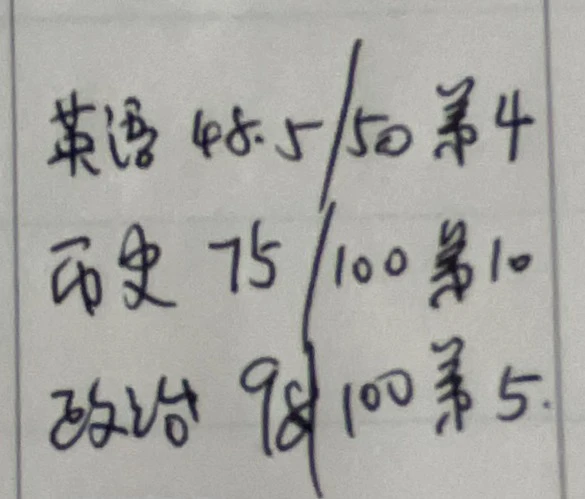 英语 48.5/50 第4
历史 75/100 第10
政治 98/100 第5.